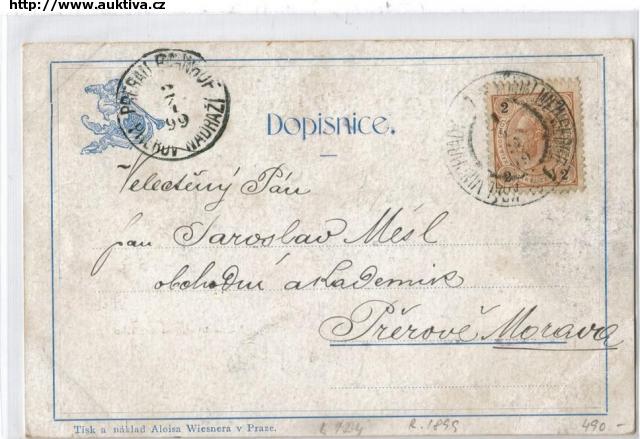 http://www.auktiva.cz
PRERAU BAHNHOF
2
1
99
PŘEROV NÁDRAŽÍ
Dopisnice.
2
2
Velectěný Pán
pan Jaroslav Mésl
obchodní akademik
Přérově Morava
Tisk a náklad Aloisa Wiesnera v Praze.
R. 1899
490 -